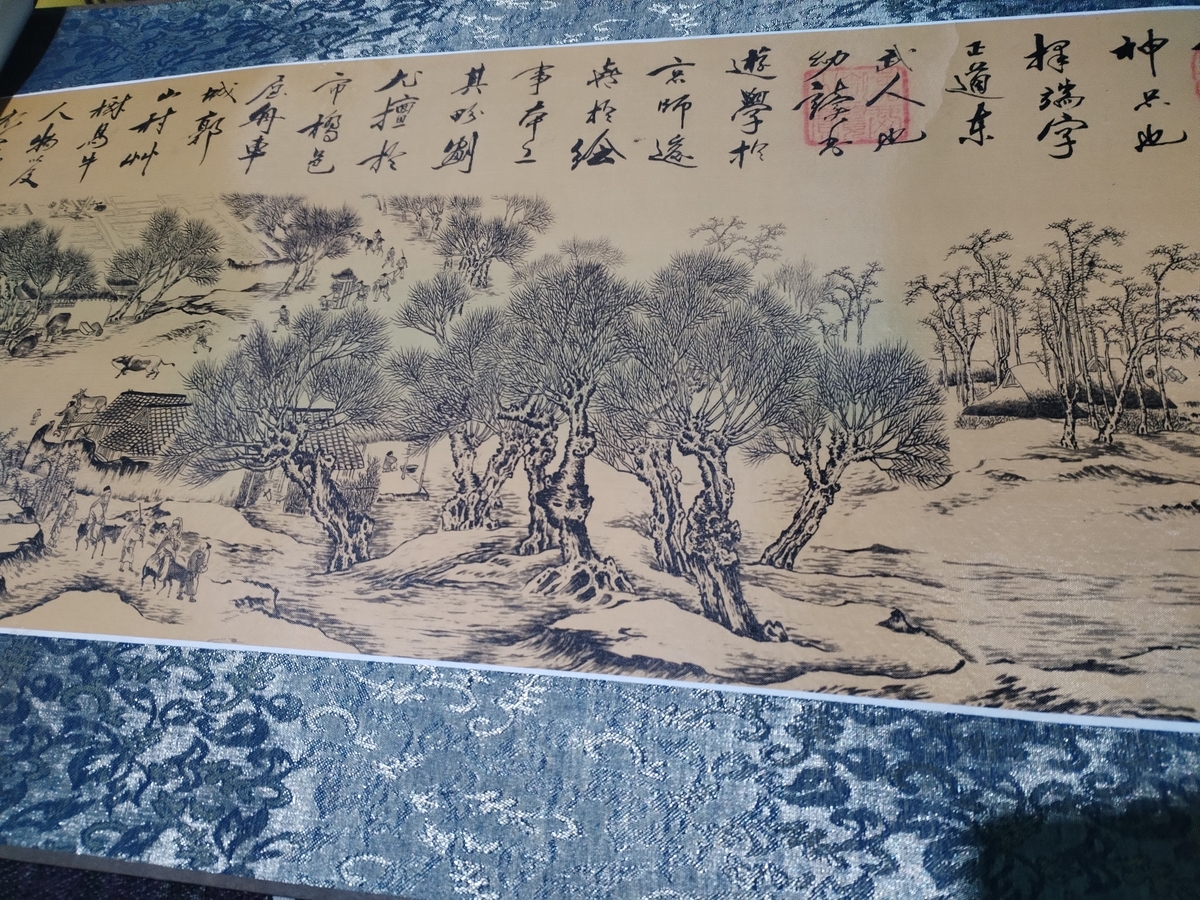 神品也
擇端字
正道东
武人也
幼讀书
遊學於
京師後
於繪
事本工
其界劃
尤擅於
市橋邑
屋舟車
城郭
山村艸
樹馬牛
人物